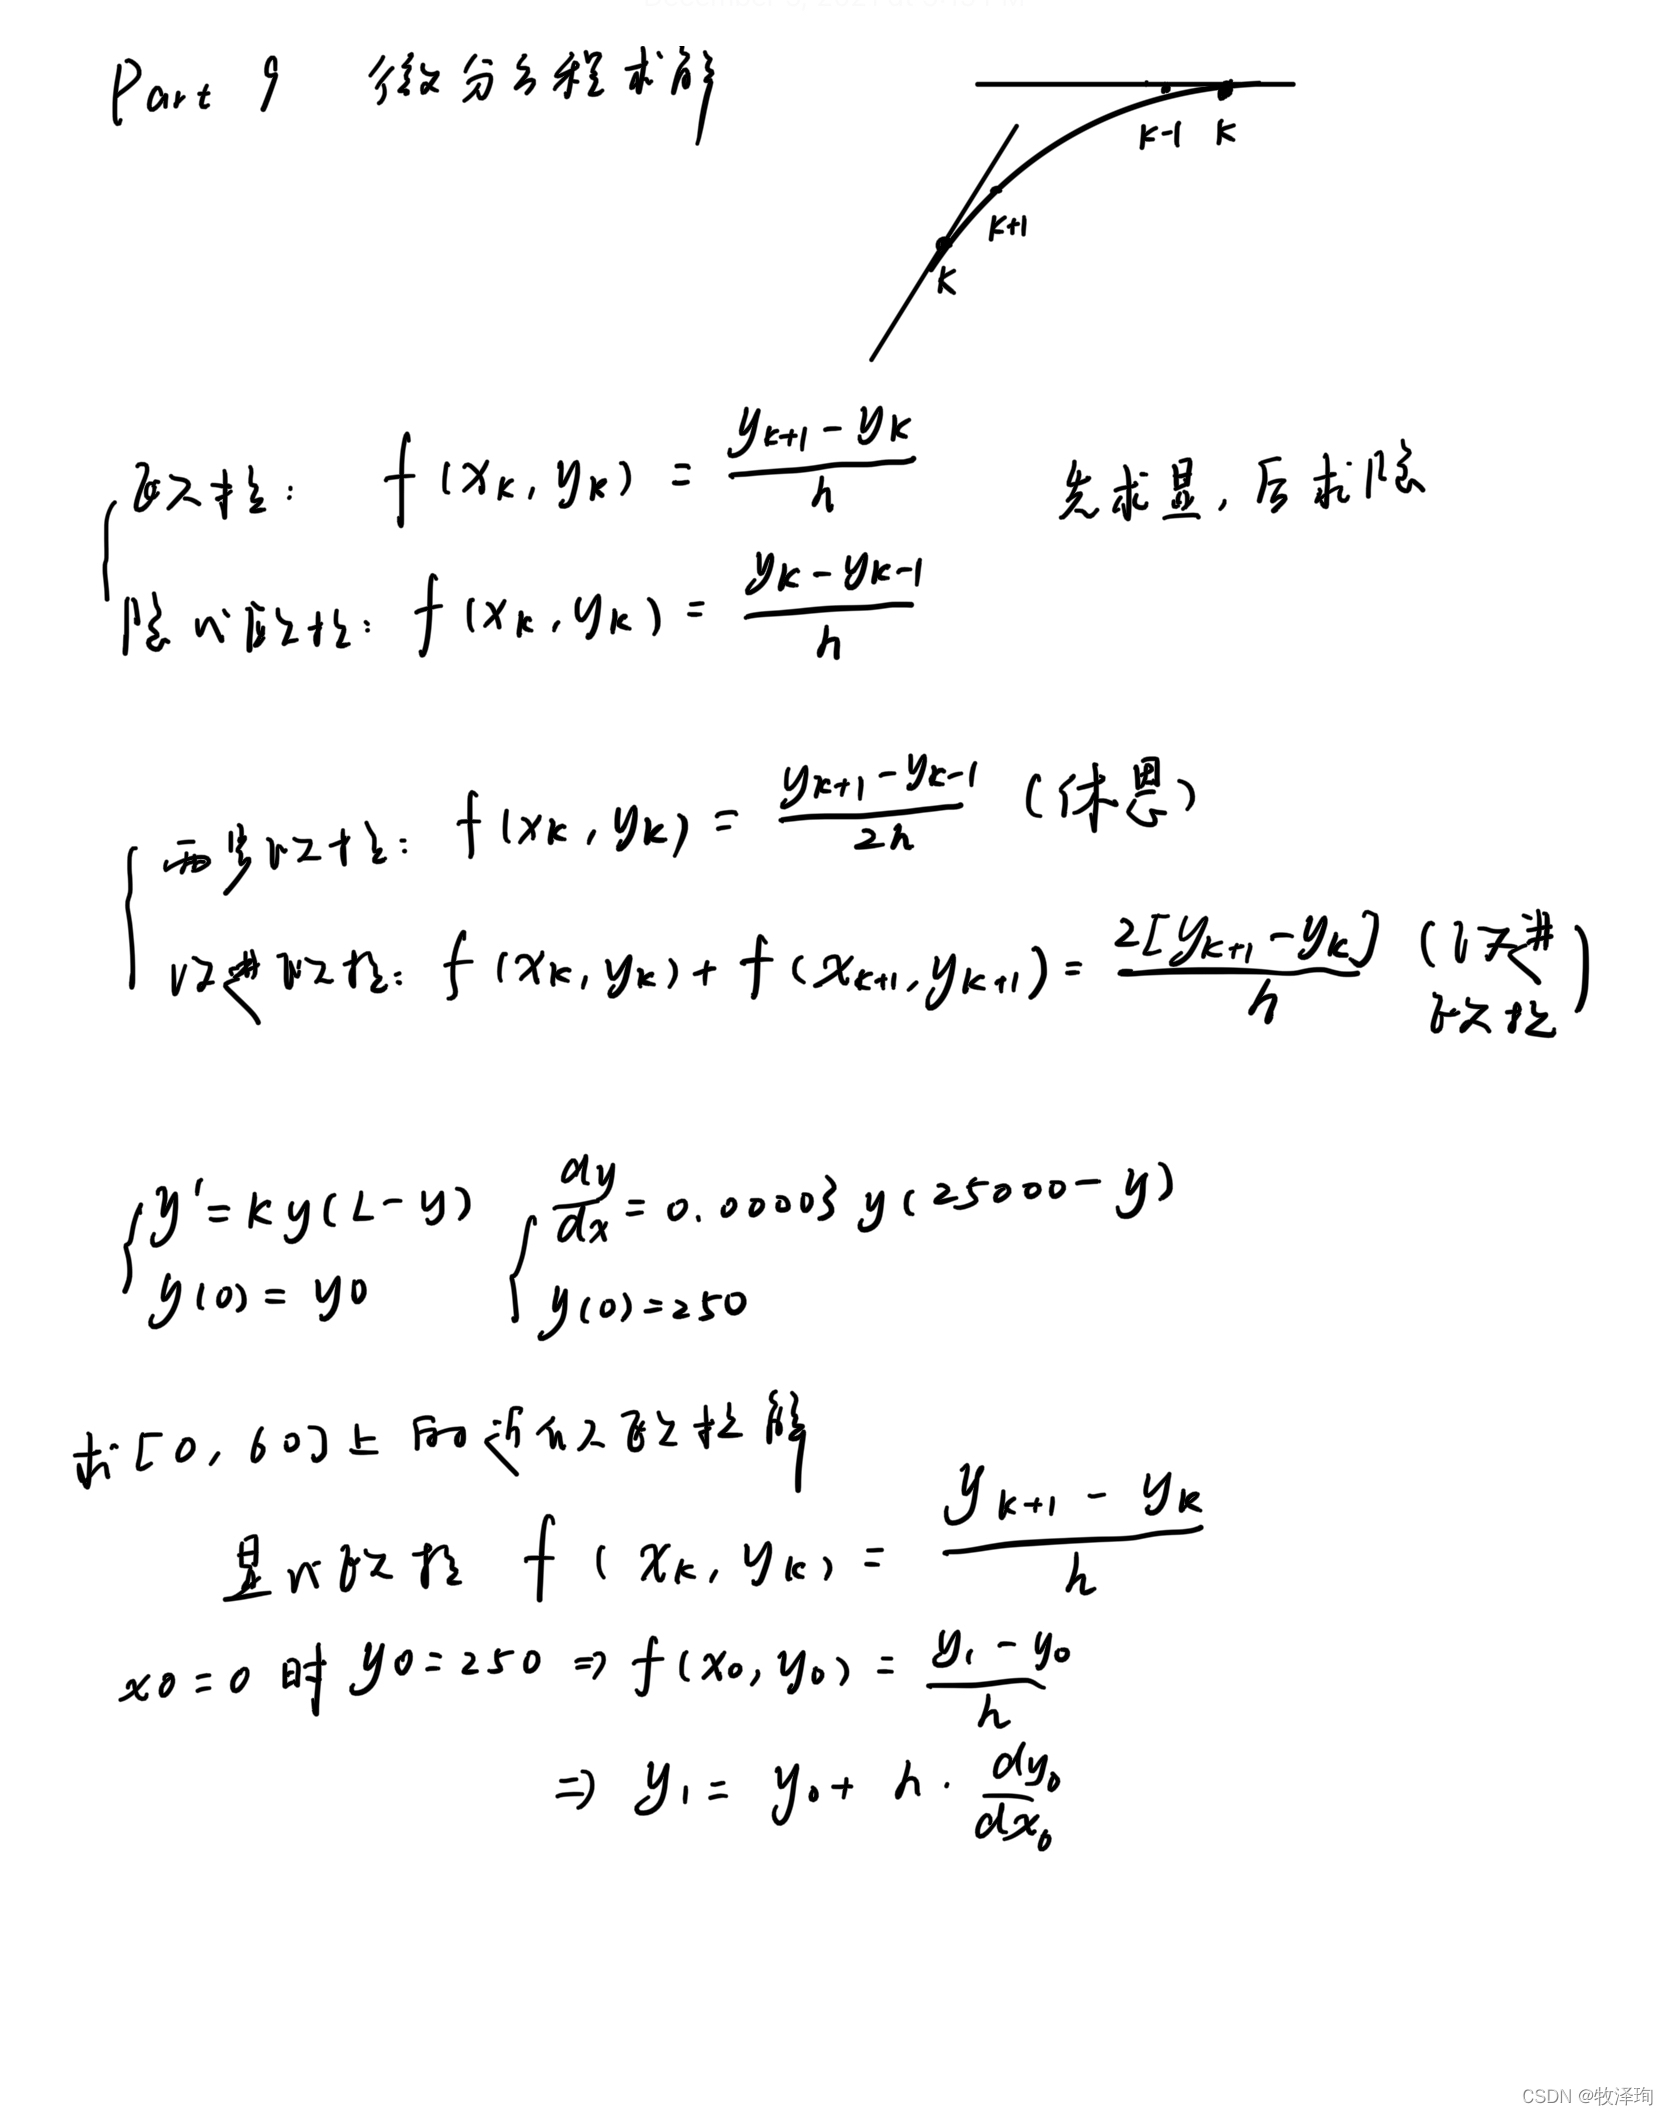 Part 9 微分方程求解
k-1 k
k+1
k
欧拉: f(xk, yk) = (yk+1 - yk)/h 先求显, 后求隐
隐式欧拉: f(xk, yk) = (yk - yk-1)/h
两步欧拉: f(xk, yk) = (yk+1 - yk-1)/2h (休恩)
改进欧拉: f(xk, yk) + f(xk+1, yk+1) = 2[yk+1 - yk]/h (改进
欧拉)
y' = ky(L-y) dy/dx = 0.00003 y(25000-y)
y(0) = y0 y(0)=250
求[0, 60]上 欧拉解
显式欧拉 f(xk, yk) = (yk+1 - yk)/h
x0=0时 y0=250 ⇒ f(x0, y0) = (y1 - y0)/h
⇒ y1 = y0 + h · dy0/dx0
CSDN @牧泽珣